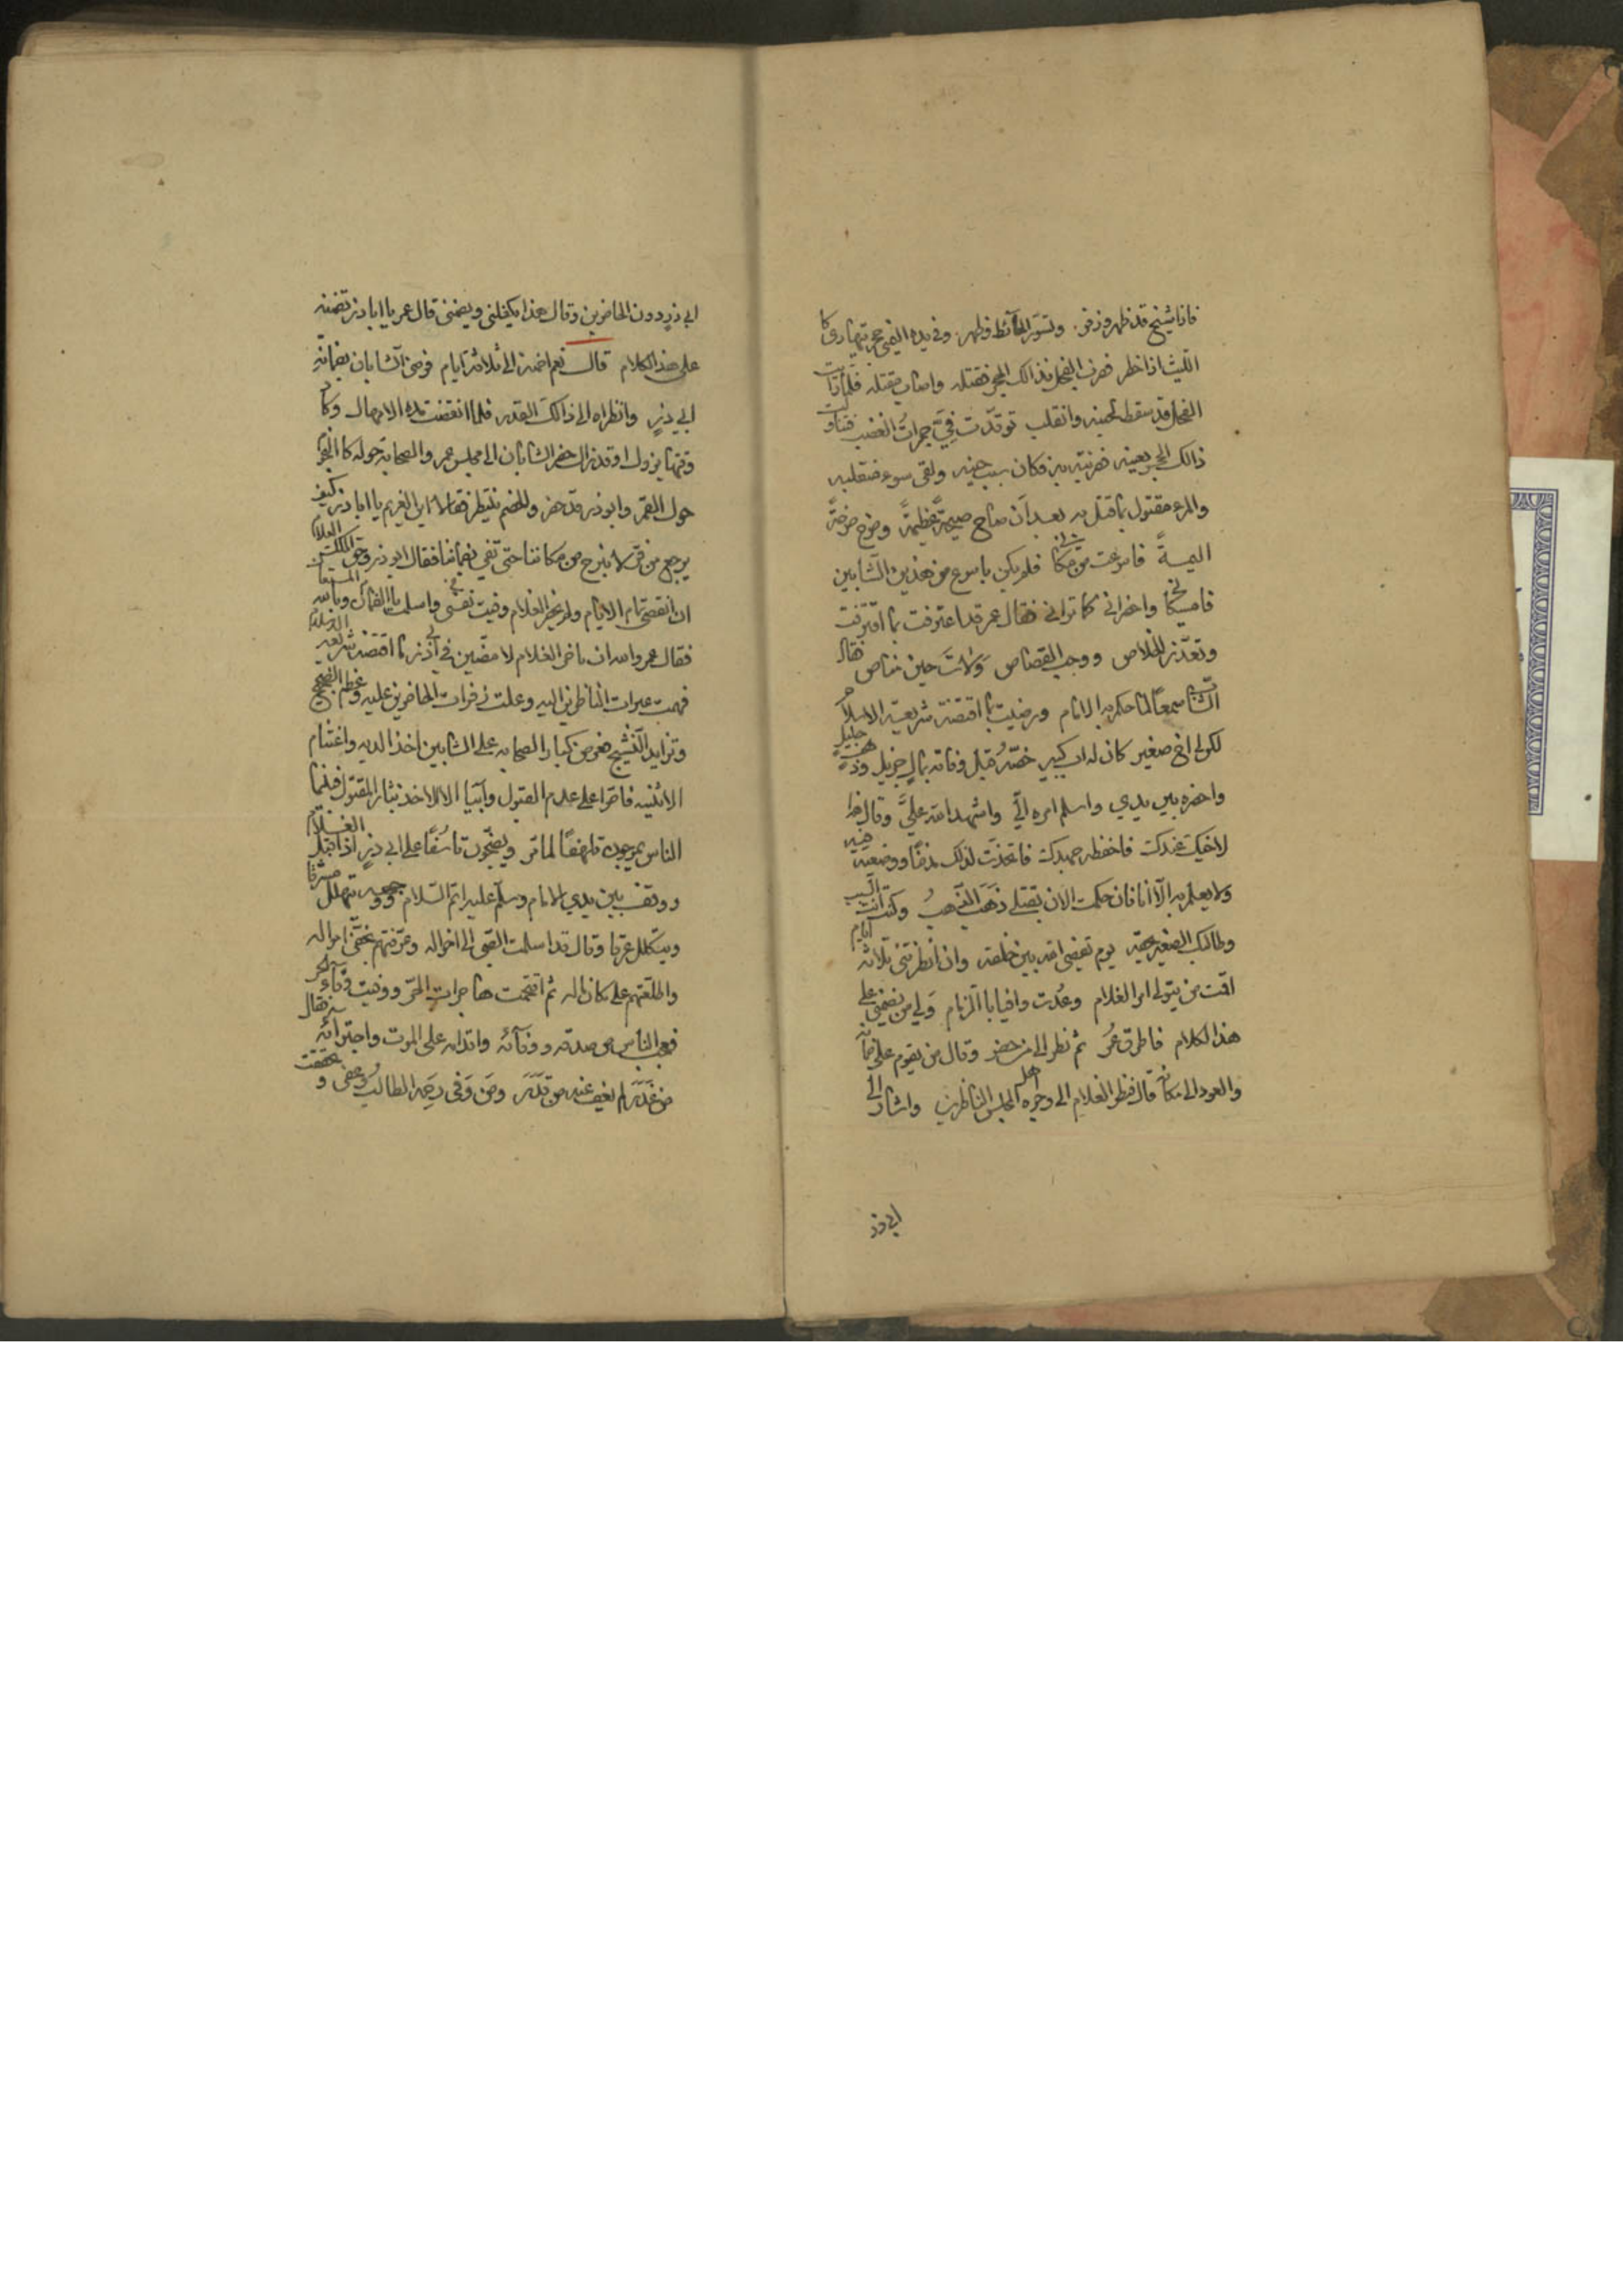 فاذا شيخ قد ظهر وزفر وتسور الحائط فظهر وفي يده اليمنى حجر يتهادى كا
الليث اذا خطر فضرب الفحل بذالك الحجر فقتله واصاب مقتله فلما رايت
الفحل قد سقط لجنبه وانقلب توقدت في جمرات الغضب فتناولت
ذالك الحجر بعينه فضربته به فكان سبب حينه ولقى سوء منقلبه
والمرء مقتول بما قتل به بعد ان صاح صيحة عظيمة وصرخ صرخة
اليمة فاسرعت من مكاني فلم يكن باسرع من هذين الشابين
فامسكاني واحضراني كما تراني فقال عمر قد اعترفت بما اقترفت
وتعذر الخلاص ووجب القصاص ولات حين مناص فقال
الشاب سمعا لما حكم به الامام ورضيت بما اقتضته شريعة الاسلام
لكن لي اخ صغير كان له اب كبير خصه قبل وفاته بمال جزيل وذهب جليل
واحضره بين يدي واسلم امره الي واشهد الله علي وقال هذا
لاخيك عندك فاحفظه جهدك فاتخذت لذلك مدفنا ووضعته فيه
ولا يعلم به الا انا فان حكمت الان بقتلي ذهب الذهب وكنت انت السبب
وطالبك الصغير بحقه يوم يقضي الله بين خلقه وان انظرتني ثلاثة ايام
اقمت من يتولى امر الغلام وعدت وافيا بالذمام ولي من يضمنني على
هذا الكلام فاطرق عمر ثم نظر الى من حضر وقال من يقوم على ضمانه
والعود الى مكانه قال فنظر الغلام الى وجوه اهل المجلس الناظرين واشار الى
ابي ذر
ابي ذر دون الحاضرين وقال هذا يكفلني ويضمنني قال عمر يا ابا ذر تضمنه
على هذا الكلام قال نعم اضمنه الى ثلاثة ايام فرضي الشابان بضمانة
ابي ذر وانظراه الى ذالك القدر فلما انقضت مدة الامهال وكاد
وقتها يزول او قد زال حضر الشابان الى مجلس عمر والصحابة حوله كالنجوم
حول القمر وابو ذر قد حضر والخصم ينتظر فقالا اين الغريم يا ابا ذر كيف
يرجع من فر لا نبرح من مكاننا حتى تفي بضماننا فقال ابو ذر وحق الملك العلام
ان انقضى تمام الايام ولم يحضر الغلام وفيت بضماني واسلمت نفسي وبالله المستعان
فقال عمر والله ان تاخر الغلام لامضين في ابي ذر ما اقتضته شريعة الاسلام
فهمت عبرات الناظرين اليه وعلت زفرات الحاضرين عليه وعظم الضجيج
وتزايد النشيج فعرض كبار الصحابة على الشابين اخذ الدية واغتنام
الاثنية فاصرا على عدم القبول وابيا الا الاخذ بثار المقتول فبينما
الناس يموجون تلهفا لما مر ويضجون تاسفا على ابي ذر اذ اقبل الغلام
ووقف بين يدي الامام وسلم عليه اتم السلام ووجهه يتهلل مشرقا
ويتكلل عرقا وقال قد اسلمت الصبي الى اخواله وعرفتهم بخفي امواله
واطلعتهم على مكان ماله ثم اقتحمت هاجرات الحر ووفيت وفاء الحر
فعجب الناس من صدقه ووفائه واقدامه على الموت واجترائه فقال
من غدر لم يعف عنه من قدر ومن وفى رحمه الطالب وعفى وتحققت